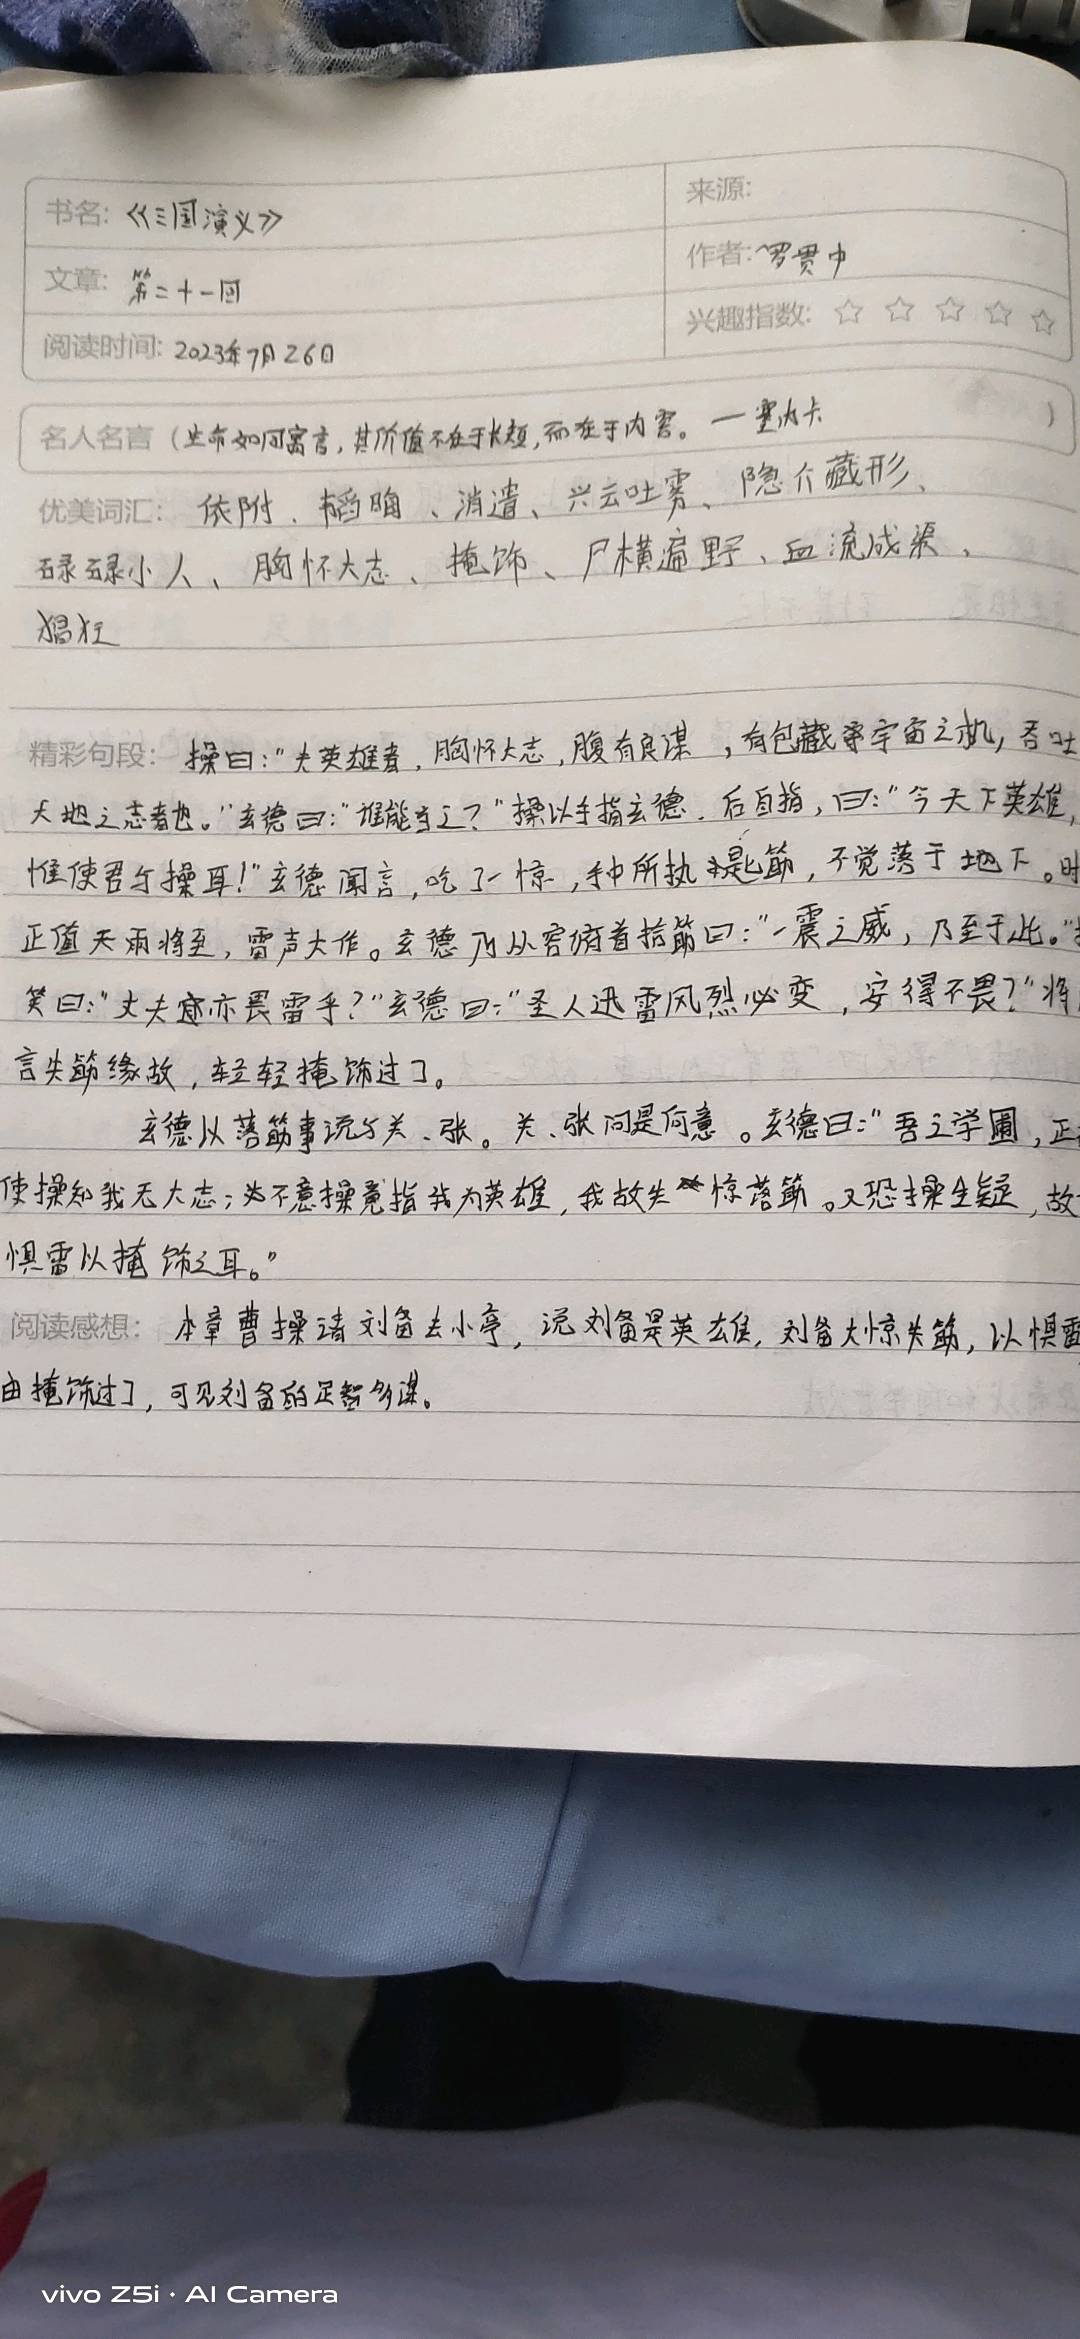 书名: 《三国演义》
来源:
文章: 第二十一回
作者: 罗贯中
阅读时间: 2023年7月26日
兴趣指数: ☆ ☆ ☆ ☆ ☆
名人名言 (生命如同寓言,其价值不在于长短,而在于内容。一塞内卡 )
优美词汇: 依附、韬晦、消遣、兴云吐雾、隐介藏形、
碌碌小人、胸怀大志、掩饰、尸横遍野、血流成渠、
猖狂
精彩句段: 操曰:“夫英雄者,胸怀大志,腹有良谋,有包藏宇宙之机,吞吐
天地之志者也。”玄德曰:“谁能当之?”操以手指玄德,后自指,曰:“今天下英雄,
惟使君与操耳!”玄德闻言,吃了一惊,手中所执匙筯,不觉落于地下。时
正值天雨将至,雷声大作。玄德乃从容俯首拾筯曰:“一震之威,乃至于此。”
笑曰:“丈夫亦畏雷乎?”玄德曰:“圣人迅雷风烈必变,安得不畏?”将
言失筯缘故,轻轻掩饰过了。
玄德以落筯事说与关、张。关、张问是何意。玄德曰:“吾之学圃,正
使操知我无大志;不意操竟指我为英雄,我故失惊落筯。又恐操生疑,故
惧雷以掩饰之耳。”
阅读感想: 本章曹操请刘备去小亭,说刘备是英雄,刘备大惊失筯,以惧雷
由掩饰过了,可见刘备的足智多谋。
vivo Z5i · AI Camera